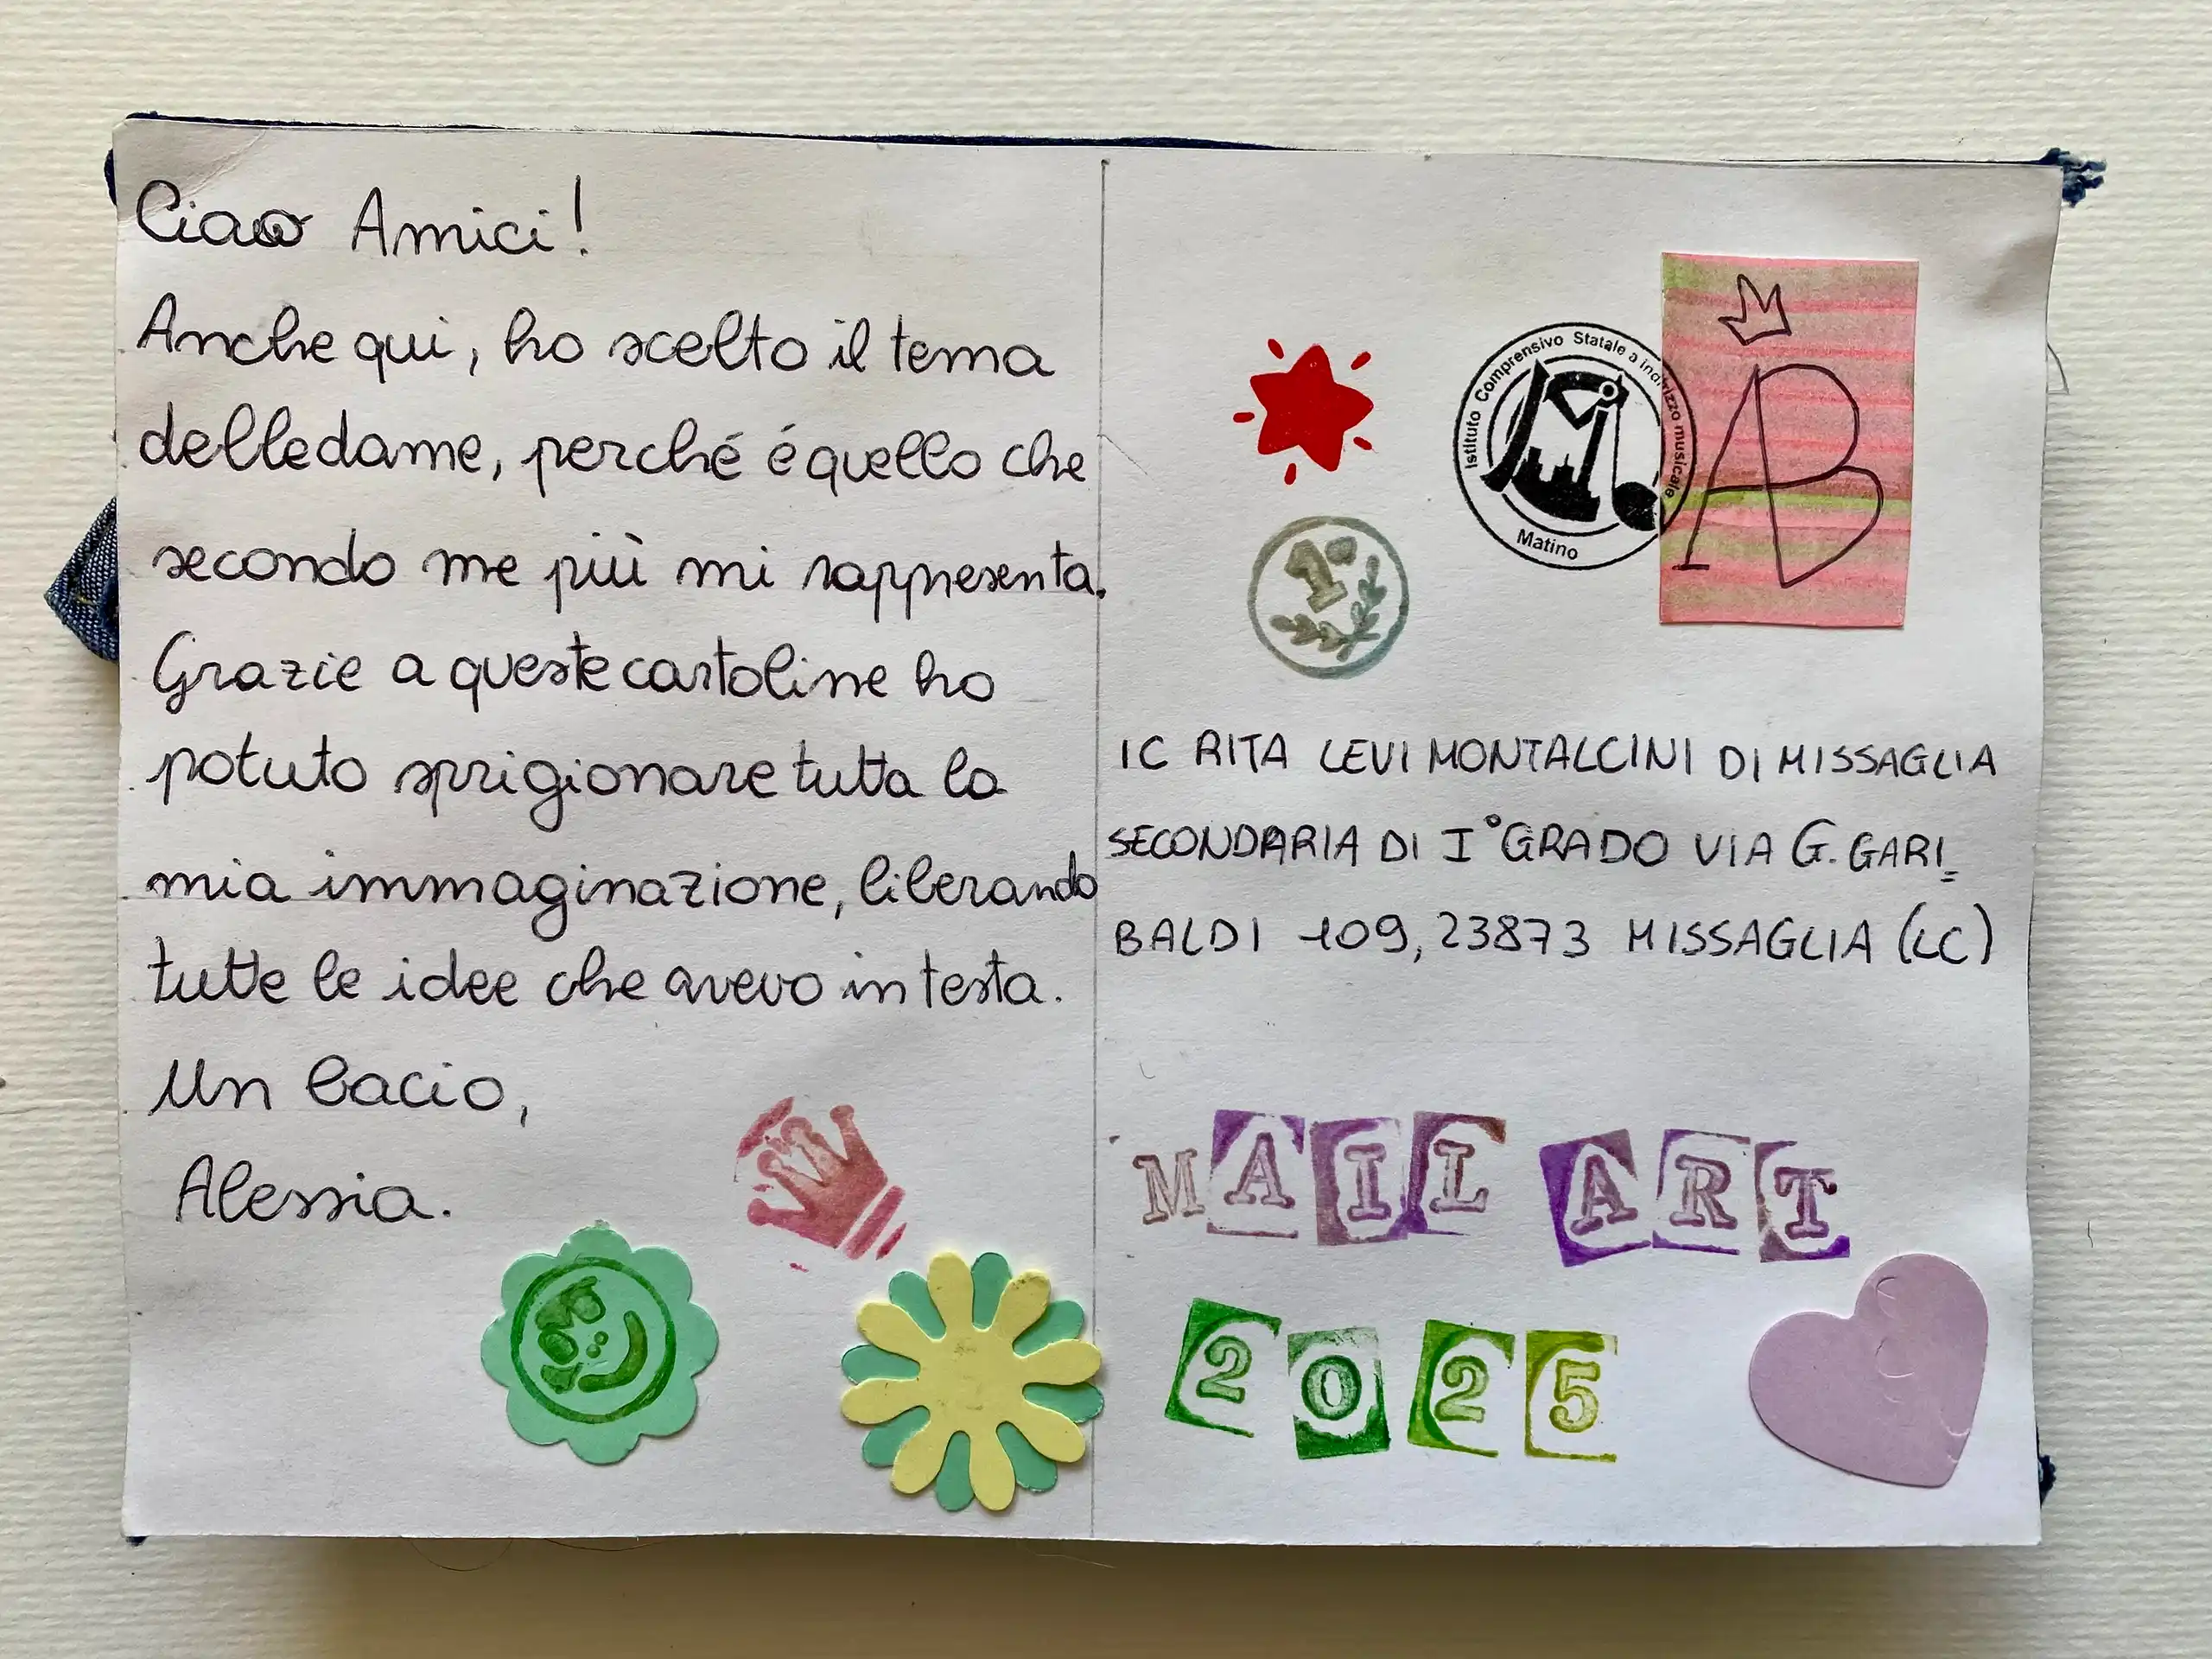 Ciao Amici!
Anche qui, ho scelto il tema
delle dame, perché é quello che
secondo me più mi rappresenta.
Grazie a queste cartoline ho
potuto sprigionare tutta la
mia immaginazione, liberando
tutte le idee che avevo in testa.
Un bacio,
Alessia.
Istituto Comprensivo Statale a indirizzo musicale
Matino
AB
1°
IC RITA LEVI MONTALCINI DI MISSAGLIA
SECONDARIA DI I° GRADO VIA G. GARI=
BALDI 109, 23873 MISSAGLIA (LC)
MAIL ART
2025